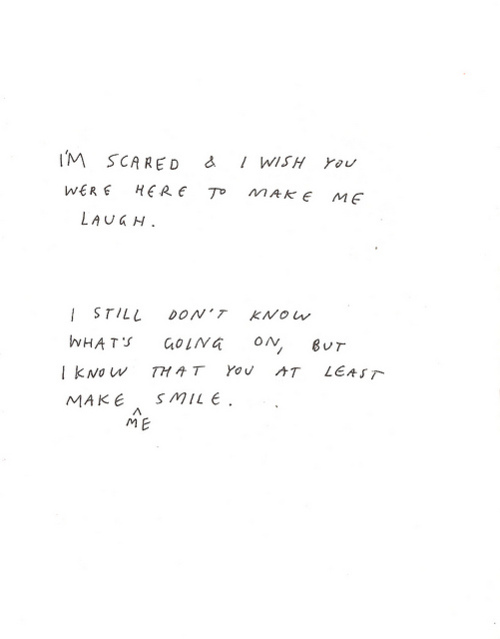 I'M SCARED & I WISH YOU
WERE HERE TO MAKE ME
LAUGH.
I STILL DON'T KNOW
WHAT'S GOING ON, BUT
I KNOW THAT YOU AT LEAST
MAKE ^ SMILE.
ME